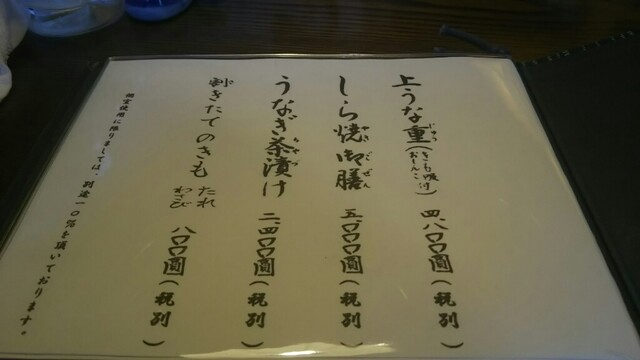 上うな重(きも吸付 おしんこ) 四、八〇〇圓(税別)
しら焼御膳 五、〇〇〇圓(税別)
うなぎ茶漬け 二、四〇〇圓(税別)
剥きたてのきも たれ わさび 八〇〇圓(税別)
個室使用に限りましては、別途一〇%を頂いております。